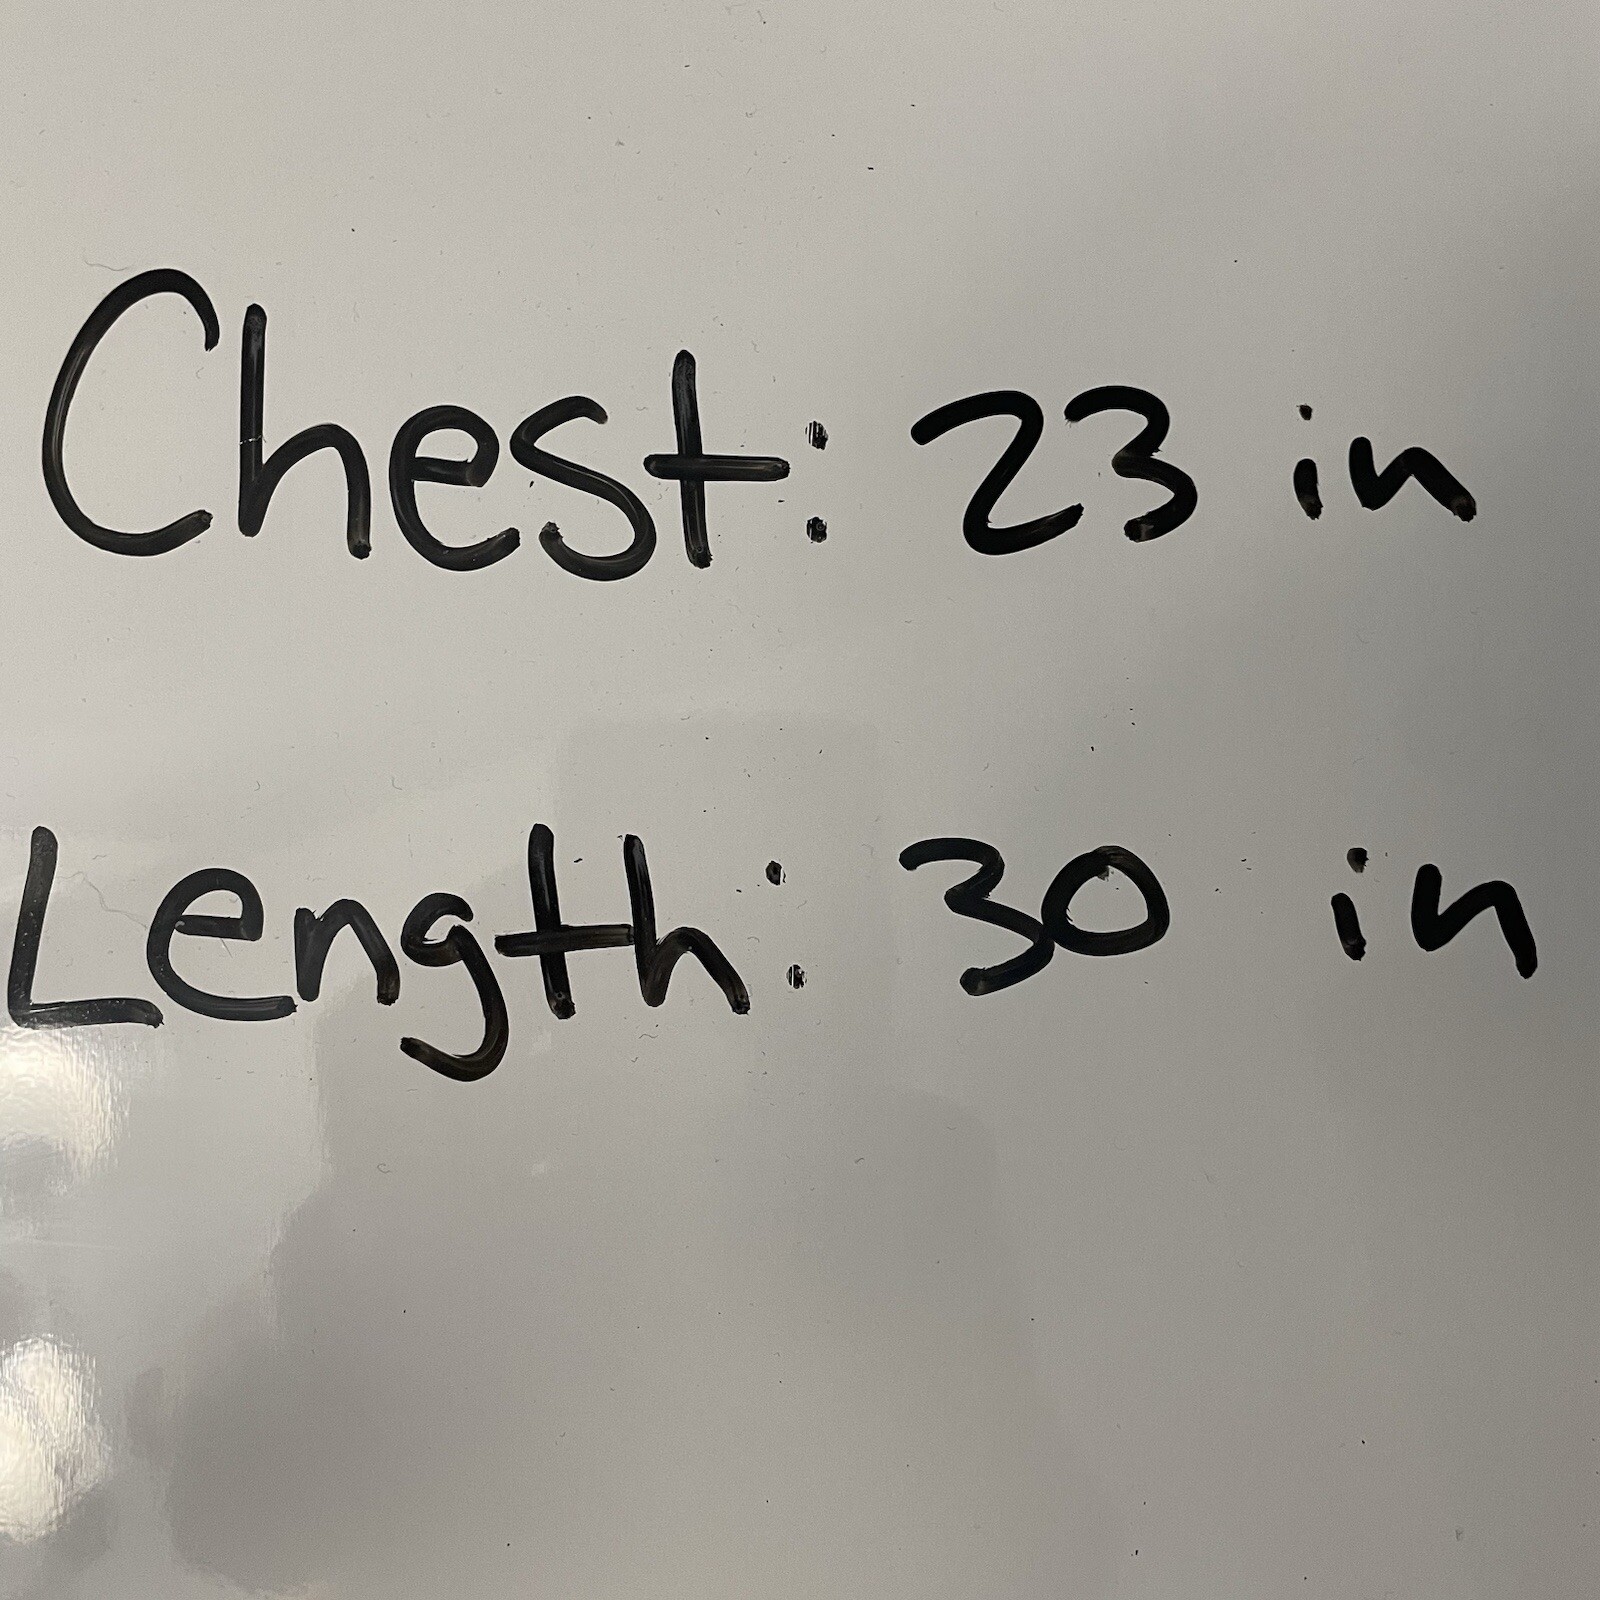 Chest: 23 in
Length: 30 in